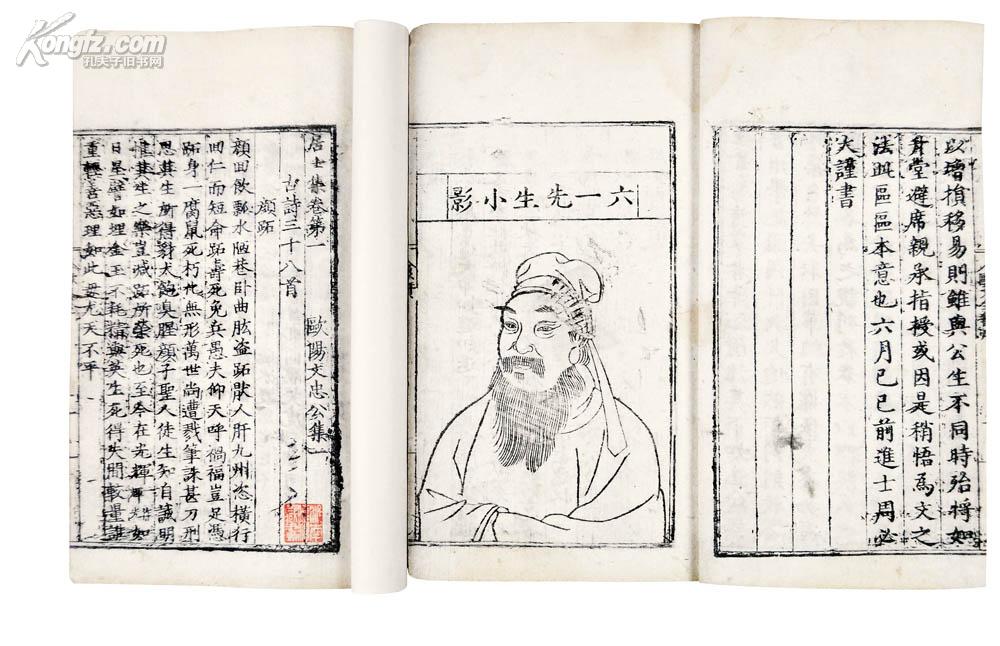 Kongfz.com
孔夫子旧书网
以增損移易則雖與公生不同時殆將如
身堂避席親承指授或因是稍悟爲文之
法此區區本意也六月己巳前進士周必
大謹書
六一先生小影
居士集卷第一 歐陽文忠公集一
古詩三十八首
顔跖
顔回飲瓢水陋巷卧曲肱盗跖猒人肝九州恣横行
回仁而短命跖壽死免兵愚夫仰天呼禍福豈足憑
跖身一腐鼠死朽化無形萬世尚遭戮筆誅甚刀刑
思其生所得豺犬飽臭腥顔子聖人徒生知自誠明
惟其生之樂豈減跖所榮死也至今在光輝 如
日星譬如埋金玉不耗精與英生死得失閒較量誰
重輕善惡理如此毋尤天不平